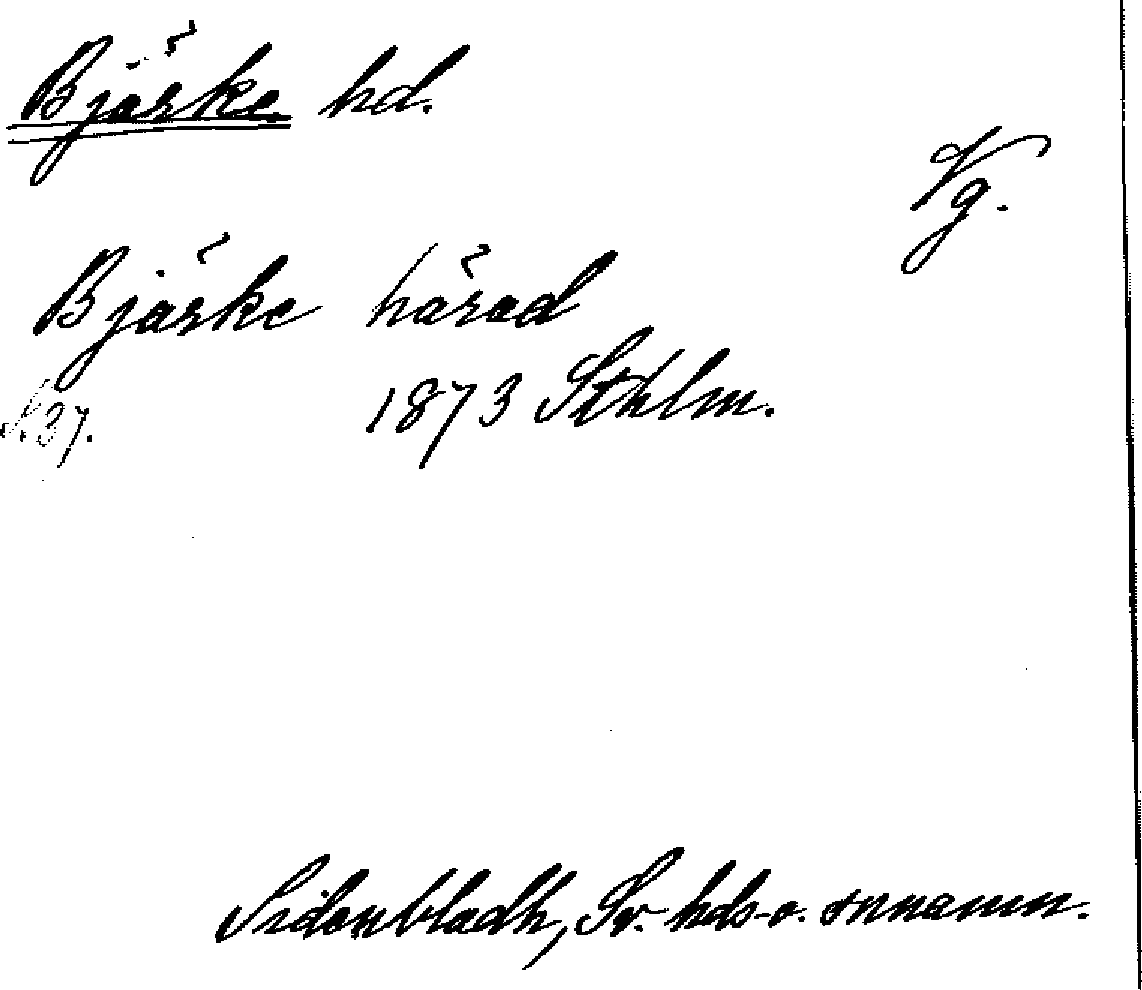 Bjärke hd.
Vg.
Bjärke härad
S. 37. 1873 Sthlm.
Sidenbladh, Sv. hds- o. snnamn.